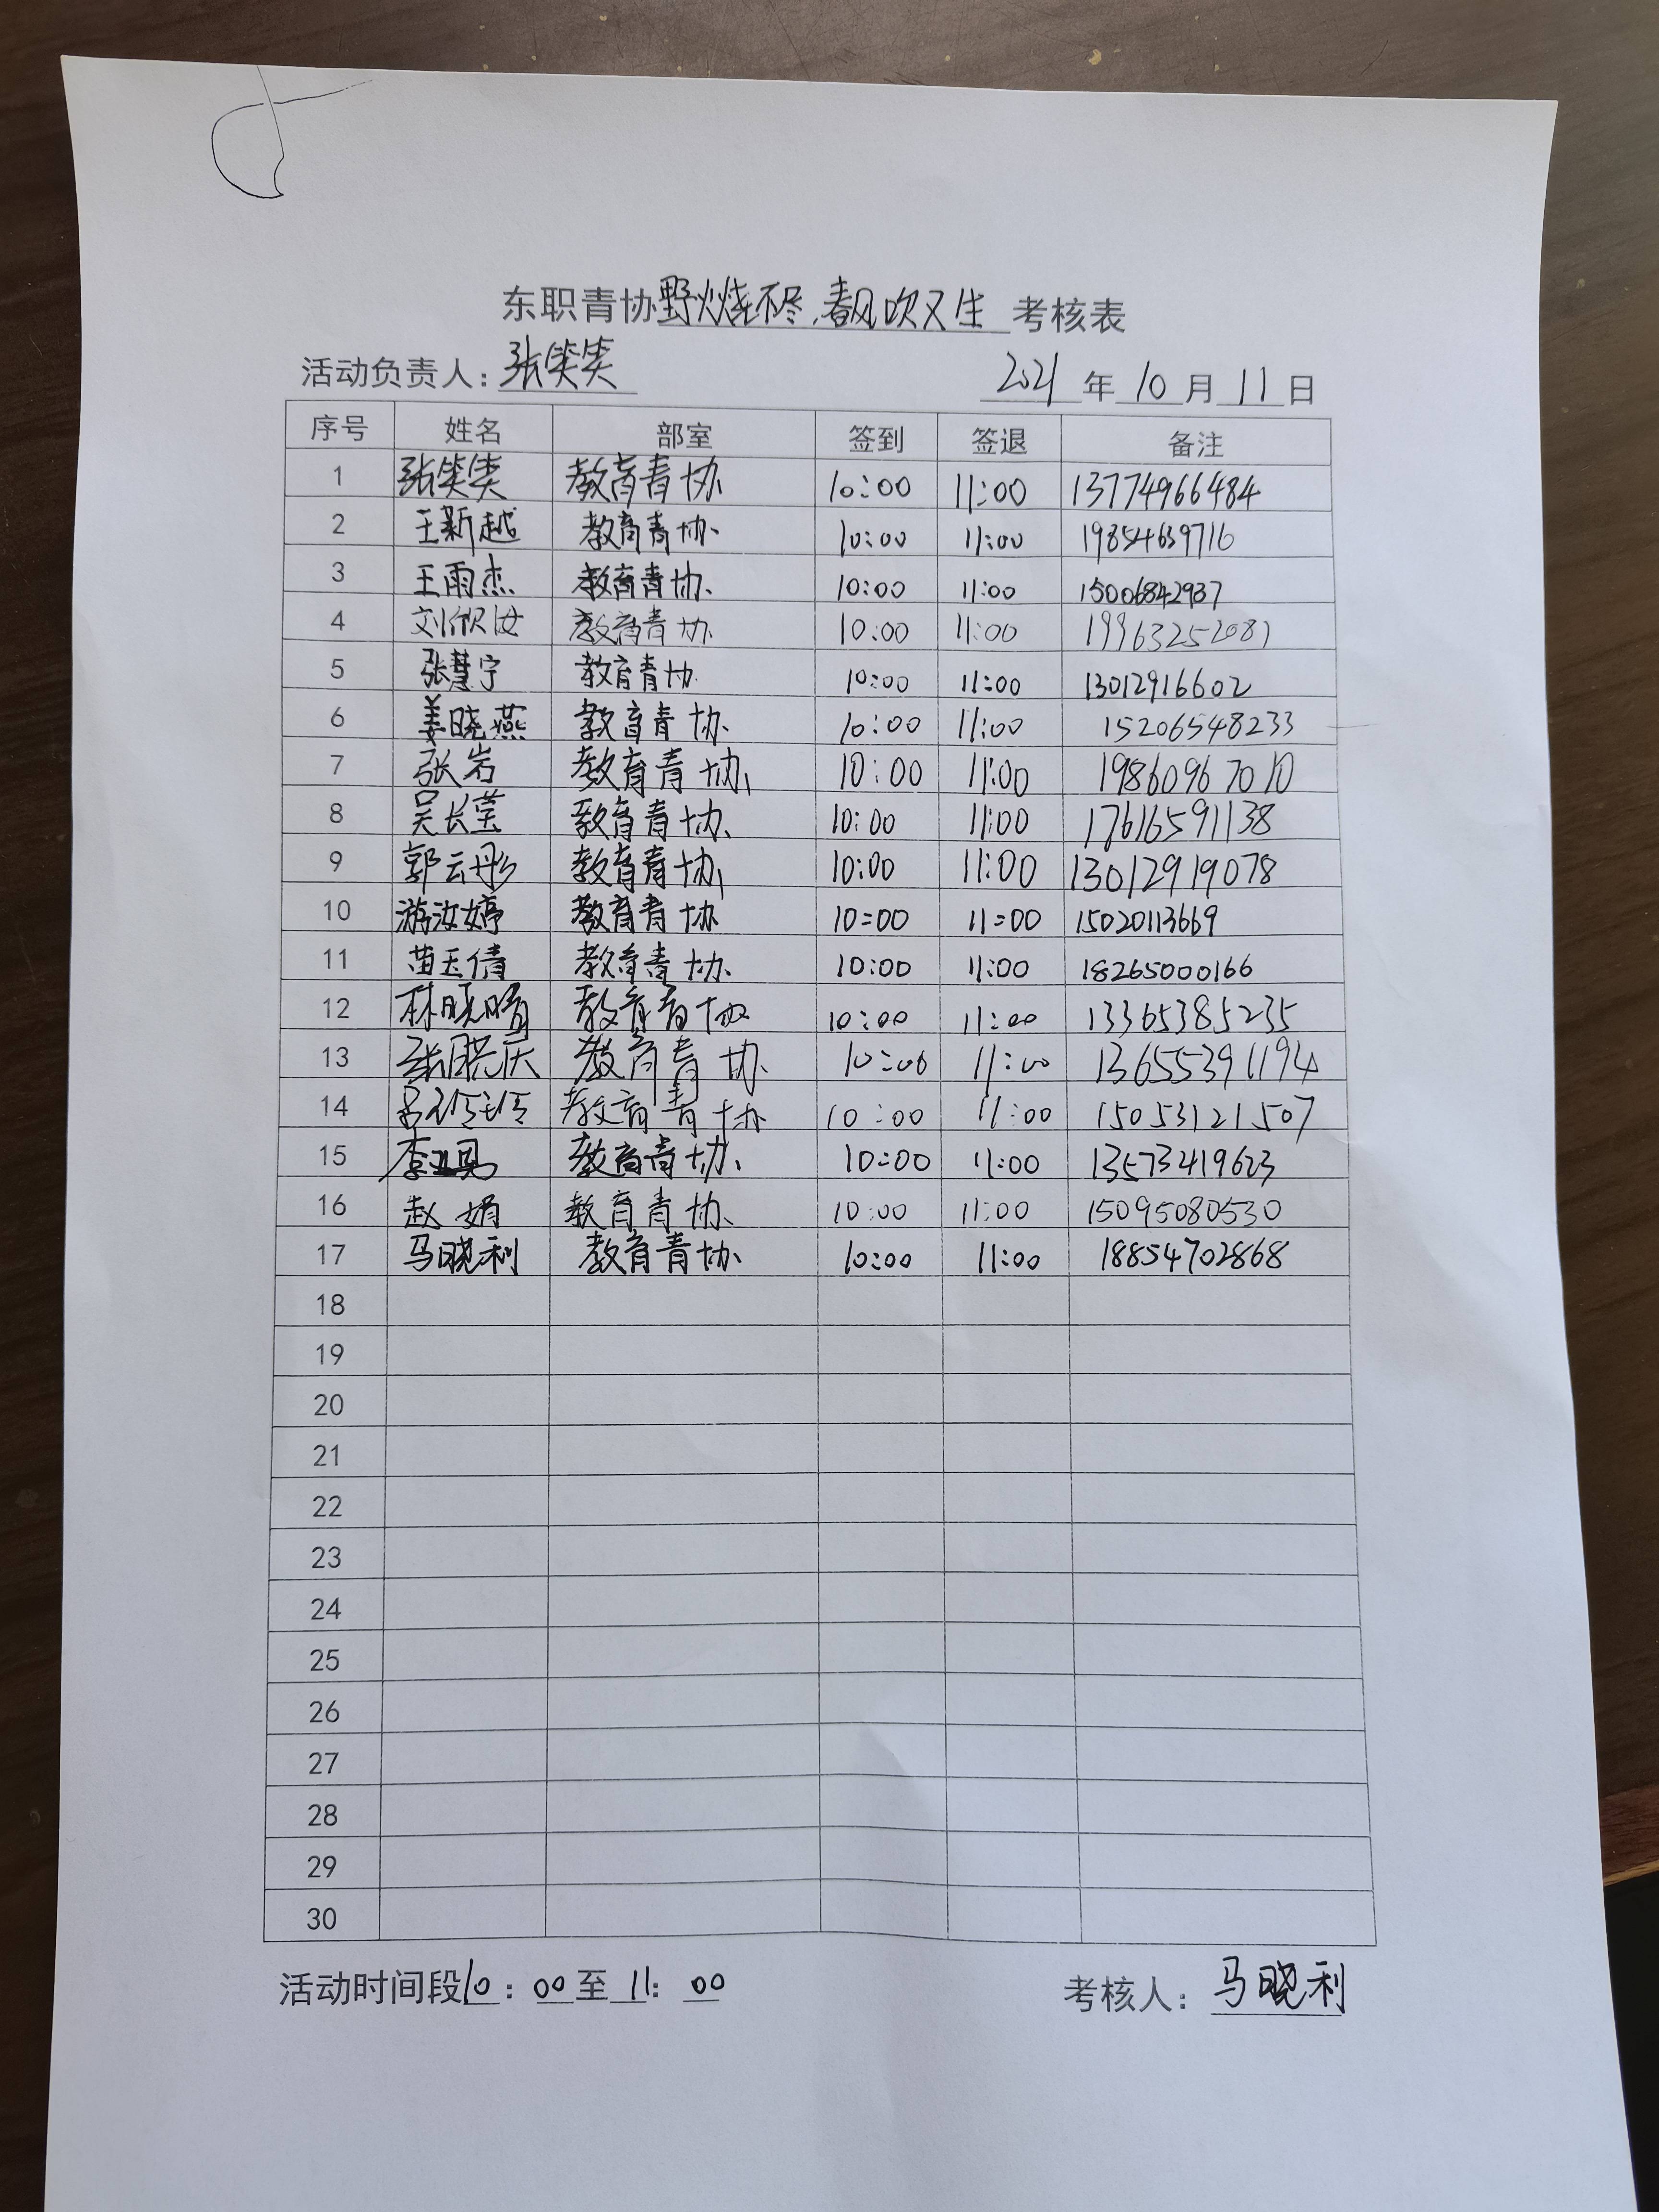 东职青协野火烧不尽,春风吹又生考核表
活动负责人:张笑笑 2021年10月11日
序号 姓名 部室 签到 签退 备注
1 张笑笑 教育青协 10:00 11:00 13774966484
2 王新越 教育青协 10:00 11:00 19854639716
3 王雨杰 教育青协 10:00 11:00 15006842937
4 刘欣汝 教育青协 10:00 11:00 19963252081
5 张慧宁 教育青协 10:00 11:00 13012916602
6 姜晓燕 教育青协 10:00 11:00 15206548233
7 张岩 教育青协 10:00 11:00 19860967010
8 吴长莹 教育青协 10:00 11:00 17616591138
9 郭云彤 教育青协 10:00 11:00 13012919078
10 游汝婷 教育青协 10:00 11:00 15020113669
11 苗玉倩 教育青协 10:00 11:00 18265000166
12 林晓晴 教育青协 10:00 11:00 13365385235
13 张晓庆 教育青协 10:00 11:00 13655391194
14 教育青协 10:00 11:00 15053121507
15 教育青协 10:00 11:00 13573419623
16 赵娟 教育青协 10:00 11:00 15095080530
17 马晓利 教育青协 10:00 11:00 18854702868
18
19
20
21
22
23
24
25
26
27
28
29
30
活动时间段10:00至11:00 考核人:马晓利